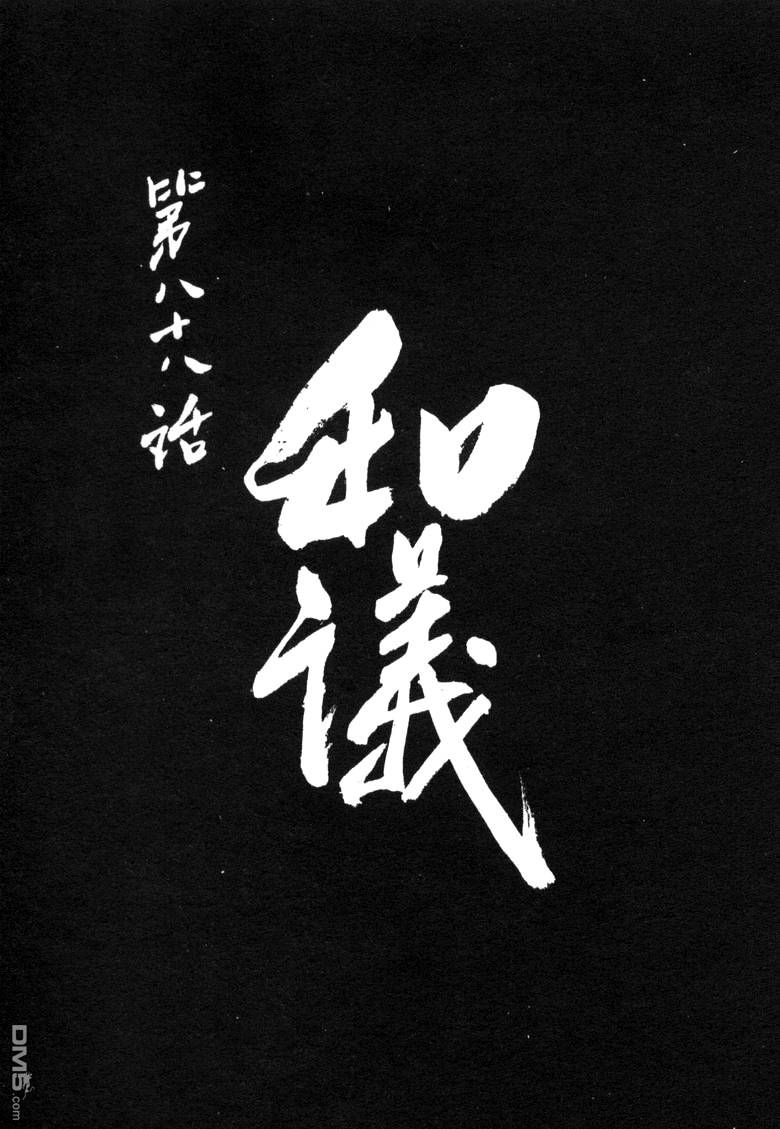 第八十八話
和議
DM5.com